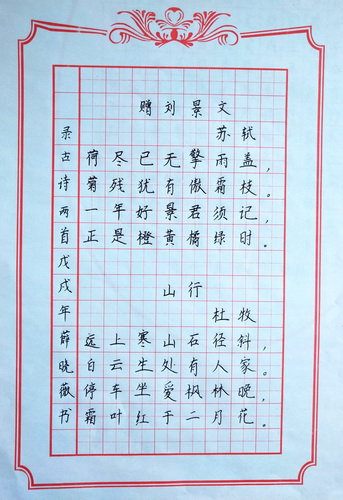 赠刘景文
苏轼
荷尽已无擎雨盖,
菊残犹有傲霜枝。
一年好景君须记,
正是橙黄橘绿时。
山行
杜牧
远上寒山石径斜,
白云生处有人家。
停车坐爱枫林晚,
霜叶红于二月花。
录古诗两首戊戌年薛晓薇书